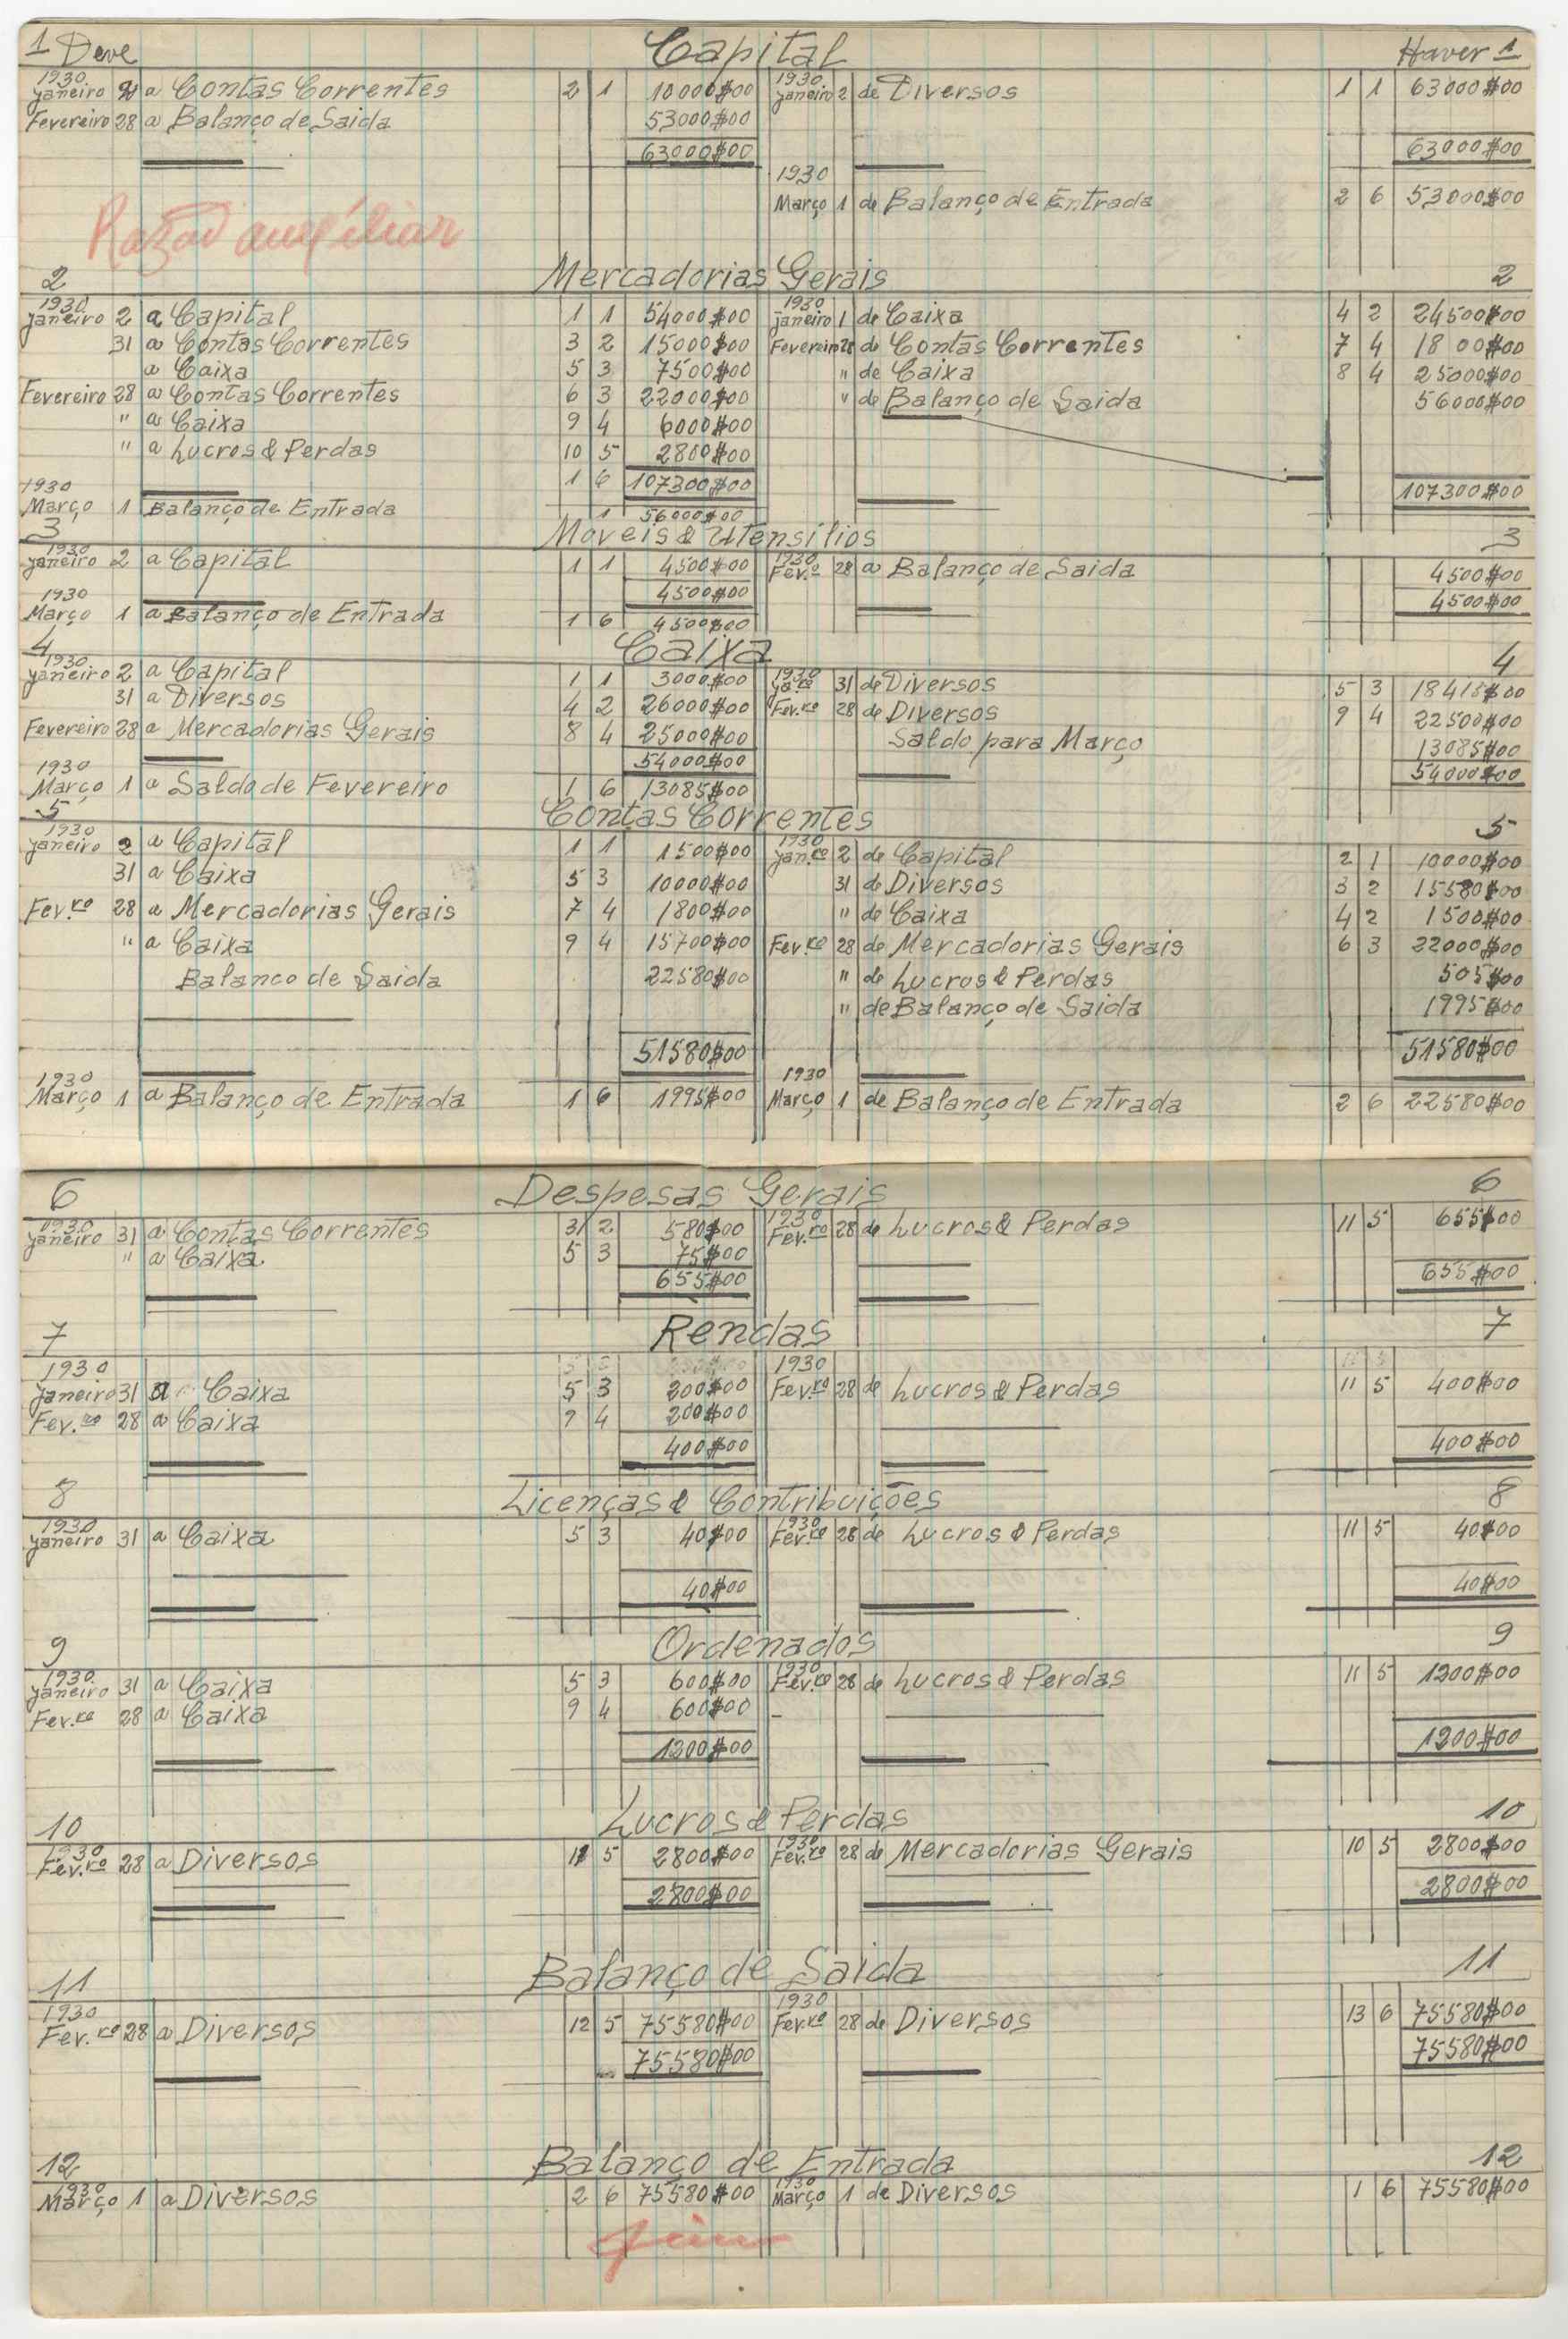 1 Deve Capital Haver 1
1930 1930
janeiro 2 a Contas Correntes 2 1 10000$00 janeiro 2 de Diversos 1 1 63000$00
Fevereiro 28 a Balanço de Saida 53000$00
63000$00 63000$00
1930
Março 1 de Balanço de Entrada 2 6 53000$00
Razão auxiliar
2 Mercadorias Gerais 2
1930 1930
janeiro 2 a Capital 1 1 54000$00 janeiro 1 de Caixa 4 2 24500$00
31 a Contas Correntes 3 2 15000$00 Fevereiro 28 de Contas Correntes 7 4 1800$00
a Caixa 5 3 7500$00 " de Caixa 8 4 25000$00
Fevereiro 28 a Contas Correntes 6 3 22000$00 " de Balanço de Saida 56000$00
" a Caixa 9 4 6000$00
" a Lucros & Perdas 10 5 2800$00
1930 1 6 107300$00 107300$00
Março 1 Balanço de Entrada 1 56000$00
3 Moveis & Utensílios 3
1930 1930
janeiro 2 a Capital 1 1 4500$00 Fev.º 28 a Balanço de Saida 4500$00
4500$00 4500$00
1930
Março 1 a Balanço de Entrada 1 6 4500$00
4 Caixa 4
1930 1930
janeiro 2 a Capital 1 1 3000$00 ja.ro 31 de Diversos 5 3 18415$00
31 a Diversos 4 2 26000$00 Fev.ro 28 de Diversos 9 4 22500$00
Fevereiro 28 a Mercadorias Gerais 8 4 25000$00 Saldo para Março 13085$00
54000$00 54000$00
1930
Março 1 a Saldo de Fevereiro 1 6 13085$00
5 Contas Correntes 5
1930 1930
janeiro 2 a Capital 1 1 1500$00 jan.ro 2 de Capital 2 1 10000$00
31 a Caixa 5 3 10000$00 31 de Diversos 3 2 15580$00
Fev.ro 28 a Mercadorias Gerais 7 4 1800$00 " de Caixa 4 2 1500$00
" a Caixa 9 4 15700$00 Fev.ro 28 de Mercadorias Gerais 6 3 22000$00
Balanco de Saida 22580$00 " de Lucros & Perdas 505$00
" de Balanço de Saida 1995$00
51580$00 51580$00
1930 1930
Março 1 a Balanço de Entrada 1 6 1995$00 Março 1 de Balanço de Entrada 2 6 22580$00
6 Despesas Gerais 6
1930 1930
janeiro 31 a Contas Correntes 3 2 580$00 Fev.ro 28 de Lucros & Perdas 11 5 655$00
" a Caixa 5 3 75$00
655$00 655$00
7 Rendas 7
1930 1930
janeiro 31 a Caixa 5 3 200$00 Fev.ro 28 de Lucros & Perdas 11 5 400$00
Fev.ro 28 a Caixa 9 4 200$00
400$00 400$00
8 Licenças & Contribuições 8
1930 1930
janeiro 31 a Caixa 5 3 40$00 Fev.ro 28 de Lucros & Perdas 11 5 40$00
40$00 40$00
9 Ordenados 9
1930 1930
janeiro 31 a Caixa 5 3 600$00 Fev.ro 28 de Lucros & Perdas 11 5 1200$00
Fev.ro 28 a Caixa 9 4 600$00
1200$00 1200$00
10 Lucros & Perdas 10
1930 1930
Fev.ro 28 a Diversos 11 5 2800$00 Fev.ro 28 de Mercadorias Gerais 10 5 2800$00
2800$00 2800$00
11 Balanço de Saida 11
1930 1930
Fev.ro 28 a Diversos 12 5 75580$00 Fev.ro 28 de Diversos 13 6 75580$00
75580$00 75580$00
12 Balanço de Entrada 12
1930 1930
Março 1 a Diversos 2 6 75580$00 Março 1 de Diversos 1 6 75580$00